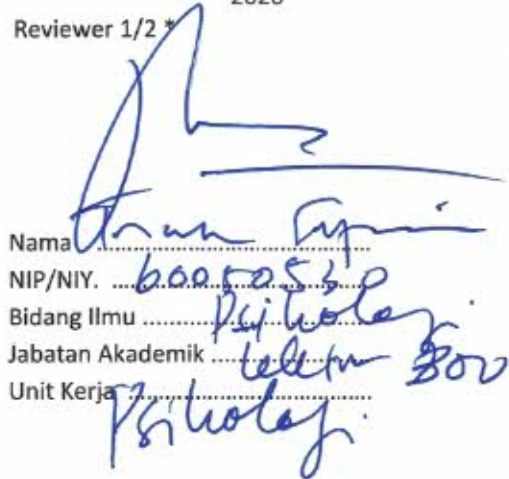 2020
Reviewer 1/2 *
Nama ..............................
NIP/NIY. 60050530
Bidang Ilmu .............................. Psikologi
Jabatan Akademik .............................. Lektor 300
Unit Kerja .............................. Psikologi.